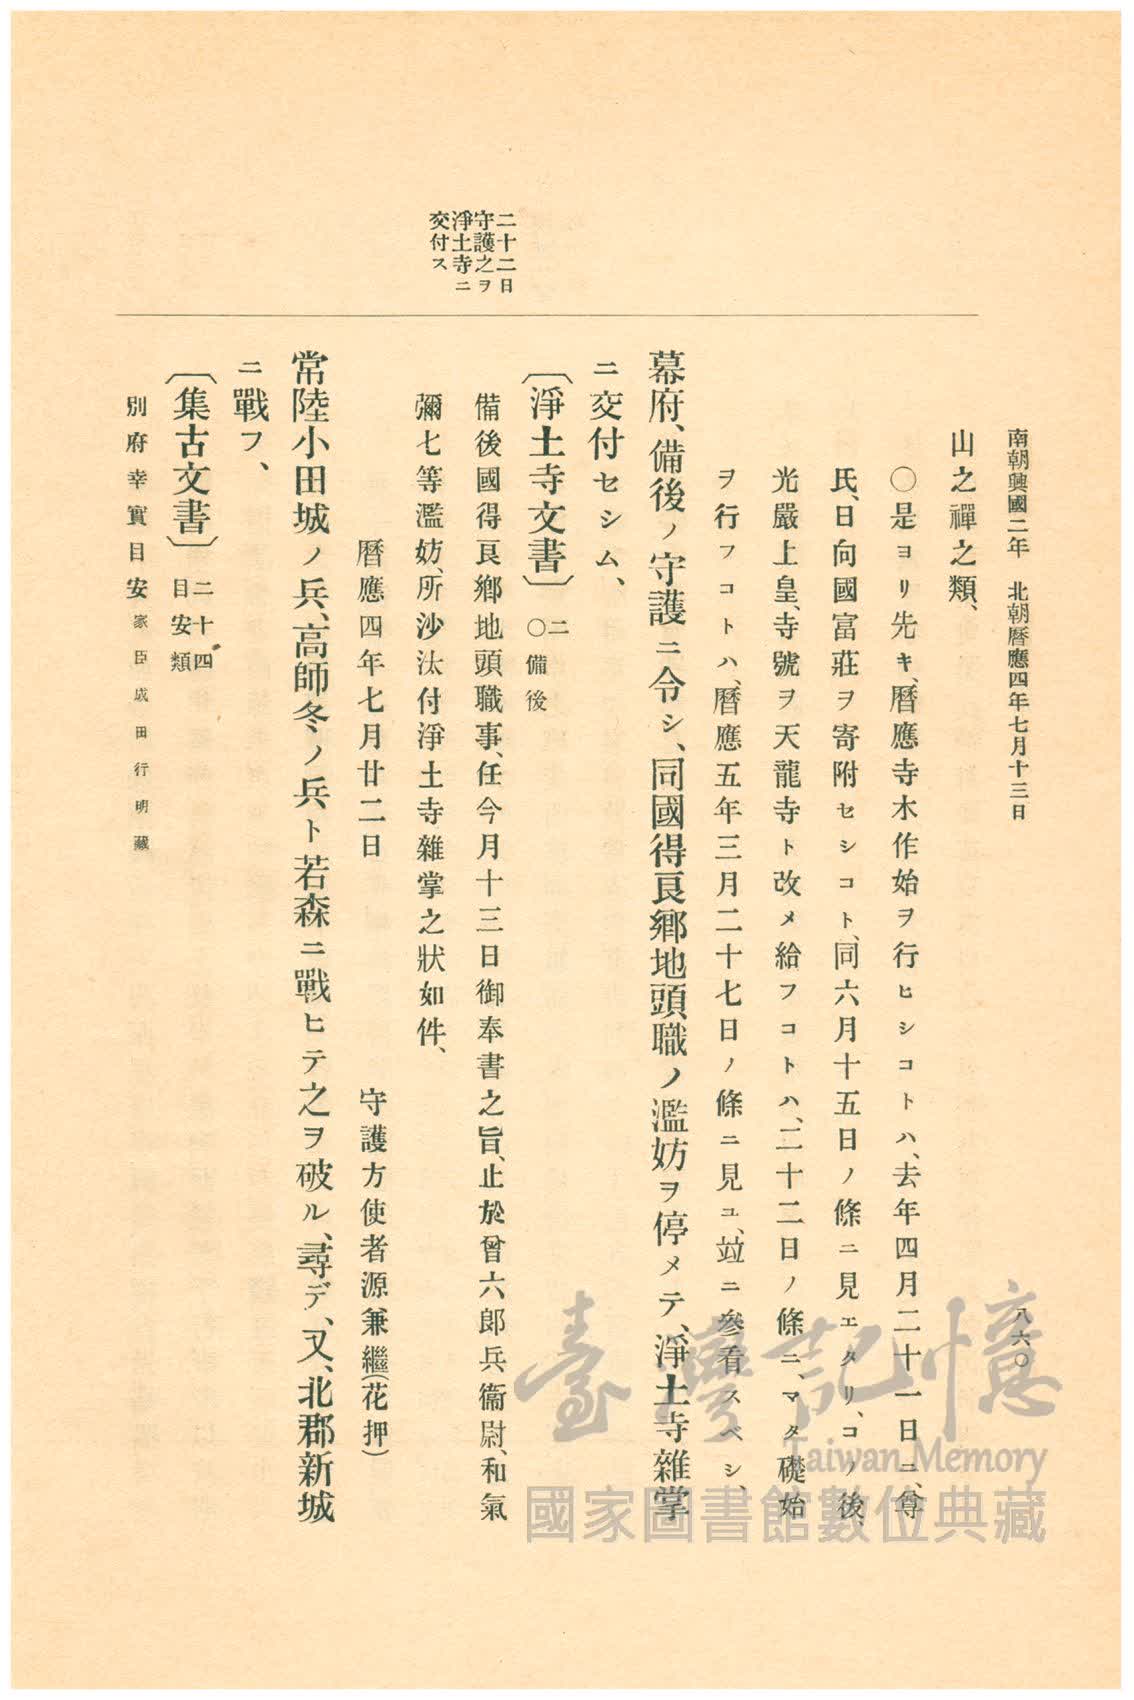 南朝興國二年 北朝曆應四年七月十三日
八六〇
山之禪之類、
〇是ヨリ先キ、曆應寺木作始ヲ行ヒシコトハ、去年四月二十一日ニ、尊
氏、日向國富莊ヲ寄附セシコト、同六月十五日ノ條ニ見エタリ、コノ後、
光嚴上皇、寺號ヲ天龍寺ト改メ給フコトハ、二十二日ノ條ニ、マタ礎始
ヲ行フコトハ、曆應五年三月二十七日ノ條ニ見ユ、竝ニ參看スベシ、
幕府、備後ノ守護ニ令シ、同國得良鄕地頭職ノ濫妨ヲ停メテ、淨土寺雜掌
ニ交付セシム、
〔淨土寺文書〕 二 〇備後
二十二日
守護之ヲ
淨土寺ニ
交付ス
備後國得良鄕地頭職事、任今月十三日御奉書之旨、止於曾六郎兵衞尉、和氣
彌七等濫妨、所沙汰付淨土寺雜掌之狀如件、
曆應四年七月廿二日 守護方使者源兼繼(花押)
常陸小田城ノ兵、高師冬ノ兵ト若森ニ戰ヒテ之ヲ破ル、尋デ、又、北郡新城
ニ戰フ、
〔集古文書〕 二十四 目安類
別府幸實目安 家臣成田行明藏
臺灣記憶
Taiwan Memory
國家圖書館數位典藏